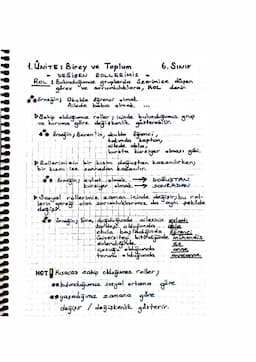 1. ÜNİTE: Birey ve Toplum 6. SINIF
- DEĞİŞEN ROLLERİMİZ -
ROL: Bulunduğumuz gruplarda üzerimize düşen
görev ve sorumluluklara, ROL denir.
Örneğin; Okulda öğrenci olmak
Ailede baba olmak, ...
Sahip olduğumuz roller; içinde bulunduğumuz grup
ve kuruma göre değişkenlik gösterebilir.
Örneğin; okulda öğrenci,
takımda kaptan,
ailede abla,
kursta kursiyer olması gibi.
Rollerimizin bir kısmı doğuştan kazanılırken,
bir kısmı ise sonradan kazanılır.
Örneğin; evlat olmak → DOĞUŞTAN
kursiyer olmak → SONRADAN
Sosyal rollerimiz zaman içinde değişir; bu rol-
lerin gereği olan sorumluluklarımız da aynı şekilde
değişir.
Örneğin; doğduğunda ailesinin evladı
kardeşi olduğunda abla
okula başladığında öğrenci
üniversiteyi bitirdiğinde mühendis
evlendiğinde eş
çocuğu olduğunda anne
torunu olduğunda anneanne
NOT! Kısaca sahip olduğumuz roller;
bulunduğumuz sosyal ortama göre
yaşadığımız zamana göre
değişir / değişkenlik gösterir.